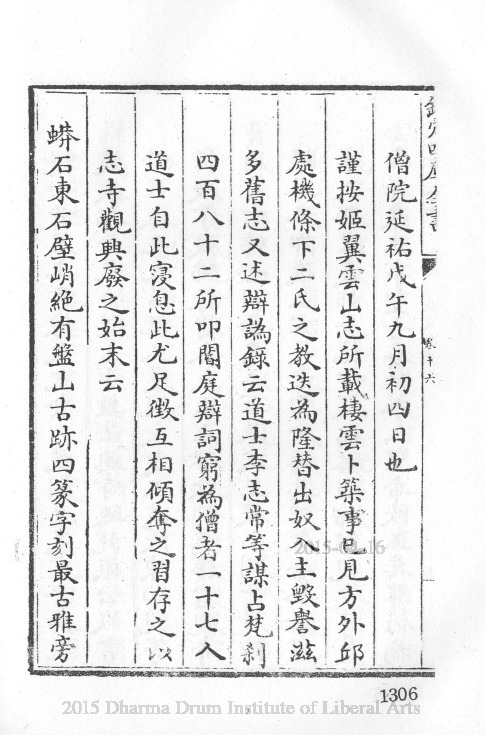 欽定四庫全書
卷十六
僧院延祐戊午九月初四日也
謹按姬翼雲山志所載棲雲卜築事已見方外邱
處機條下二氏之教迭為隆替出奴入主毀譽滋
多舊志又述辯譌錄云道士李志常等謀占梵刹
四百八十二所叩閽庭辯詞窮為僧者一十七人
道士自此寖息此尤足徴互相傾奪之習存之以
志寺觀興廢之始末云
蟒石東石壁峭絶有盤山古跡四篆字刻最古雅旁
2015-01-16
1306
2015 Dharma Drum Institute of Liberal Arts